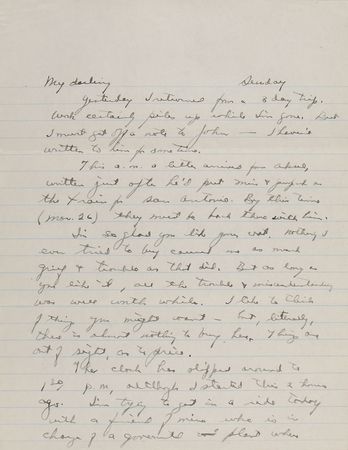 My darling Sunday
Yesterday I returned from a 3 day trip.
Work certainly piles up while I'm gone. But
I must get off a note to John — I haven't
written to him for some time.
This a.m. a letter arrived from
written just after he'd put & on
the train for San Antonio. By this time
(Mar. 26) they must be back there with him.
I'm so glad you like your coat. Nothing I
ever tried to buy caused me as much
grief & trouble as that did. But as long as
you like it, all the trouble & misunderstanding
was well worth while. I like to think
of things you might want — but, literally,
there is almost nothing to buy here. Things are
out of sight, as to price.
The clock has slipped around to
1 p.m., although I started this 2 hours
ago. I'm trying to get in a ride today
with a friend of mine who is in
charge of a government plant where